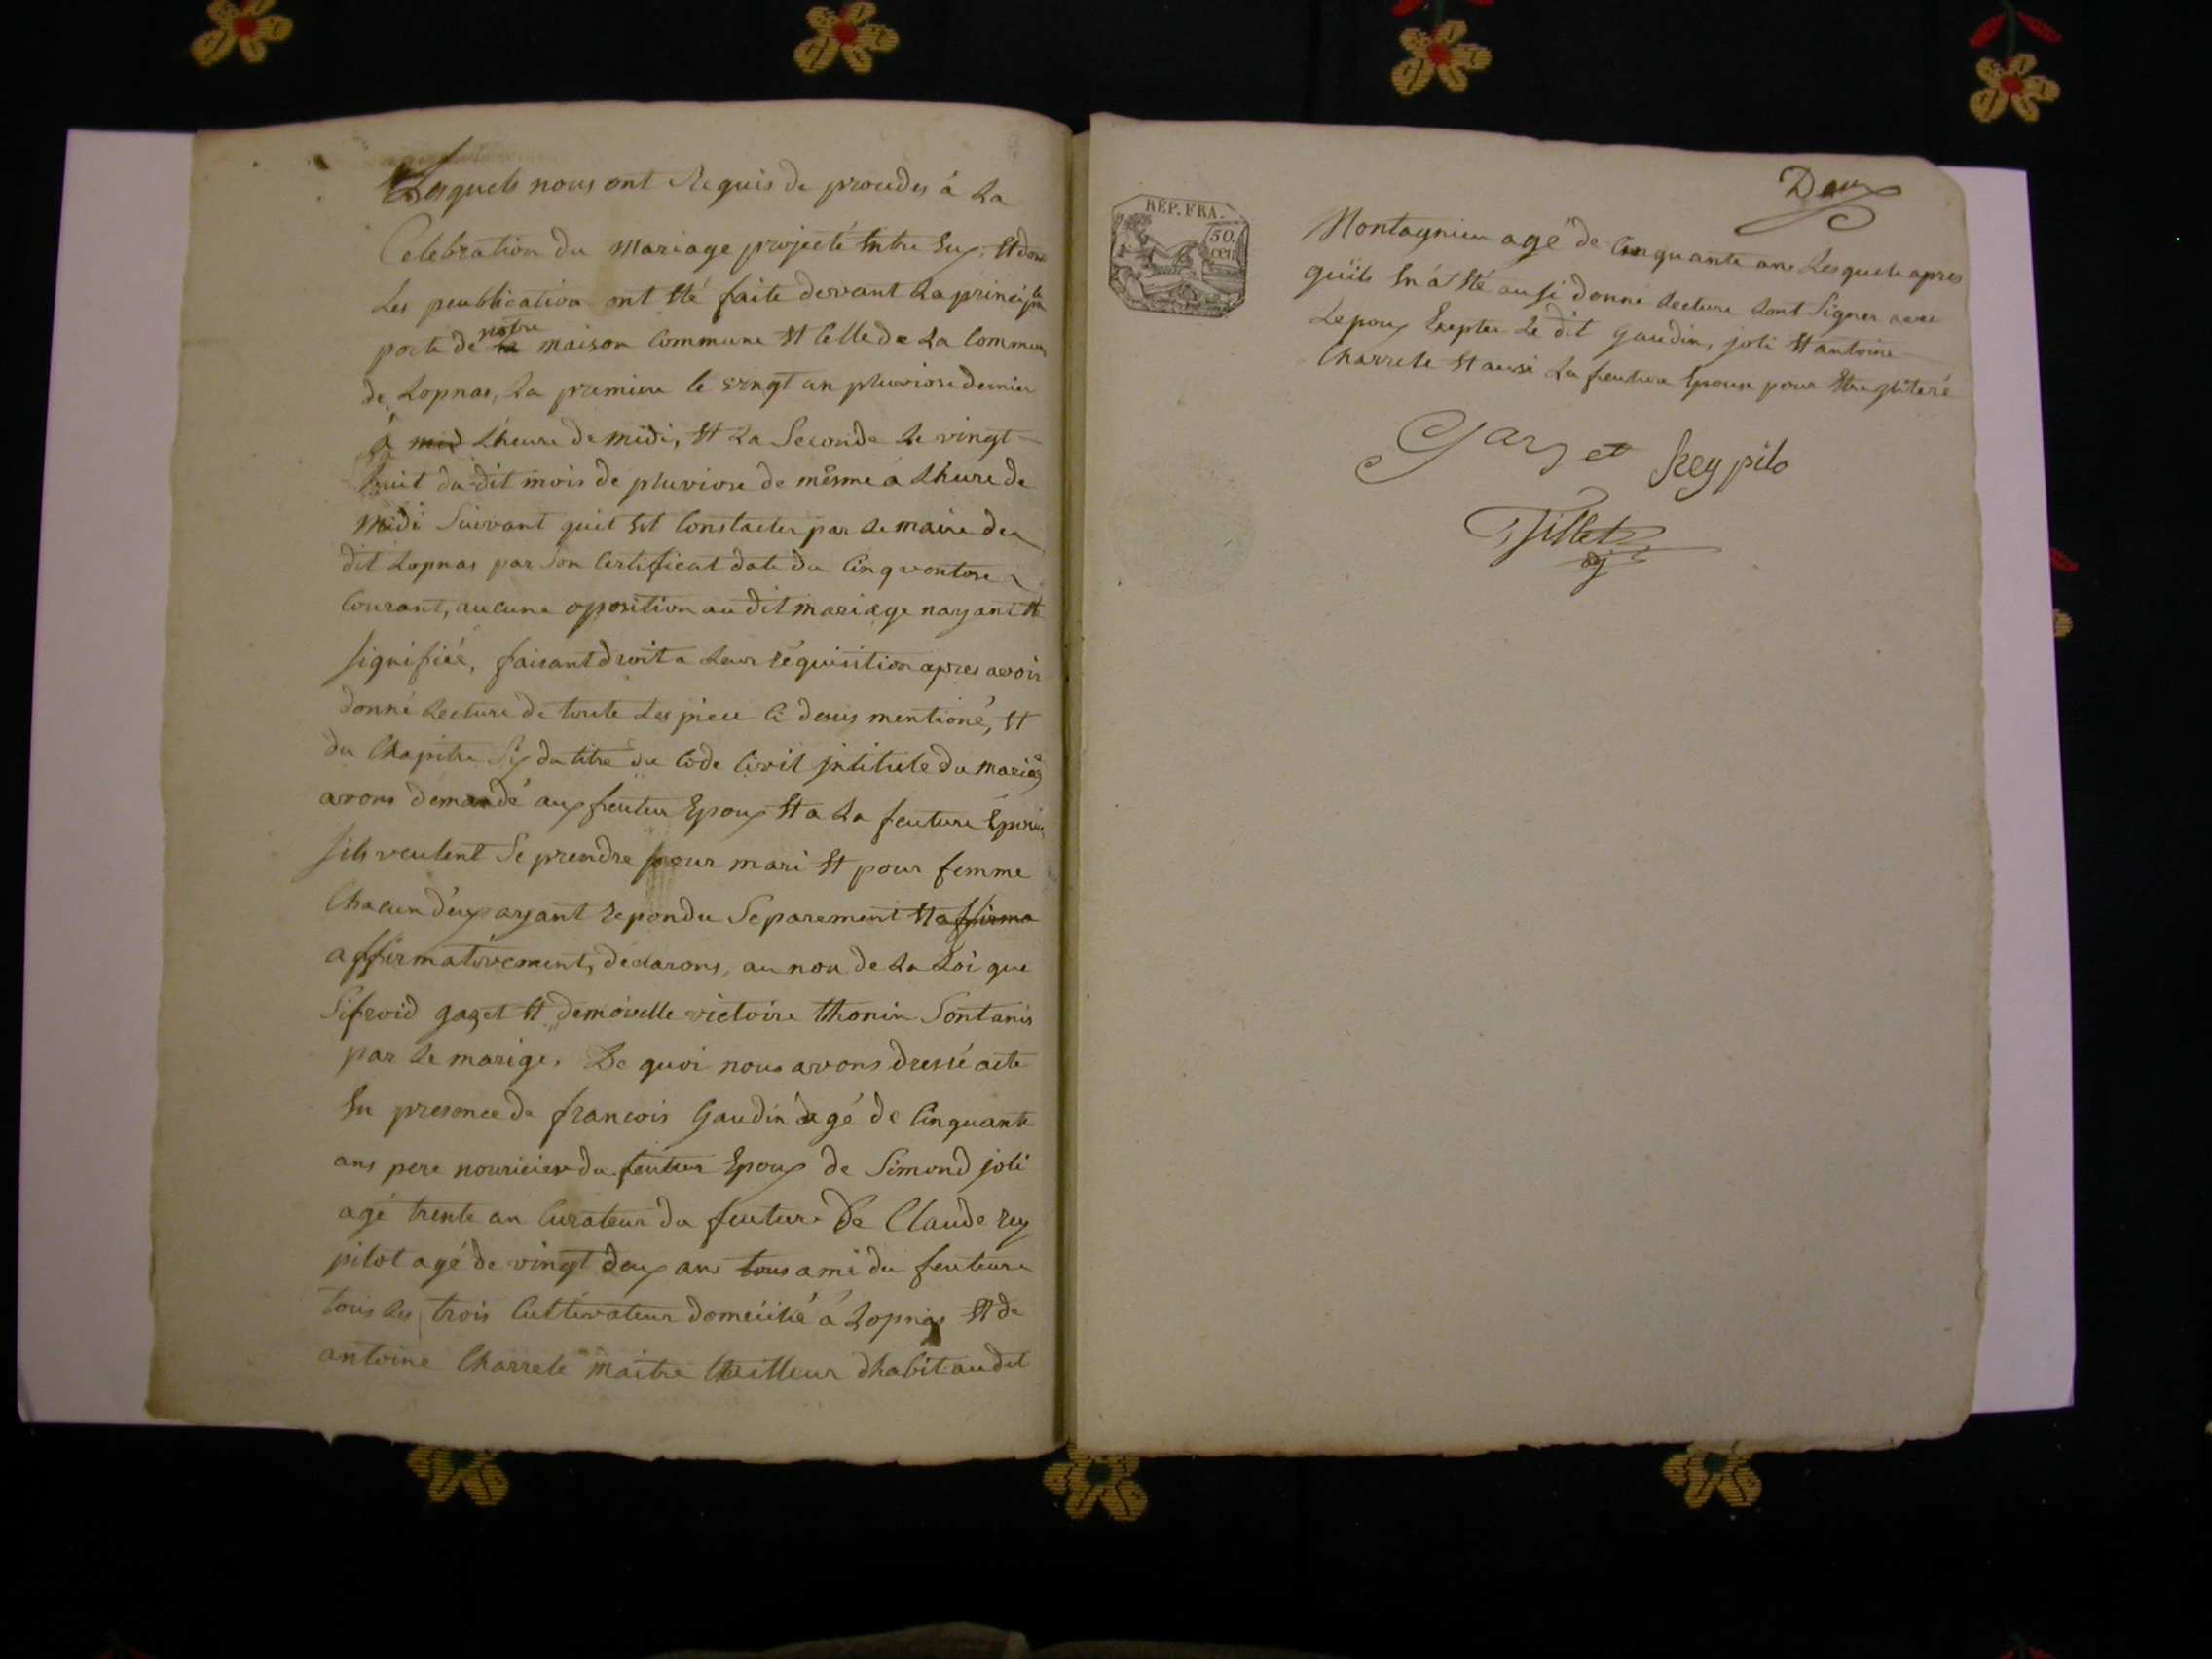 Lesquels nous ont Requis de proceder á La
Celebration du Mariage projecté Entre Eux, Et dont
Les peublication ont Eté faite devant La principale
porte de notre la maison Commune Et Celle de La Commune
de Lopnas, La premiere le vingt un pluviose dernier
á mid L'heure de midi, Et La Seconde Le vingt
huit du dit mois de pluviose de même á Lheure de
Midi Suivant quil Est Constater par Le maire du
dit Lopnas par Son Certificat date du Cinq ventose
Courant, aucune oposition au dit mariage nayant Eté
signifiée, faisant droit a Leur réquisition apres avoir
donné Lecture de toute Les piece Ci desus mentioné, Et
du Chapitre Six du titre du Code Civil jntitule du mariage
avons demandé aux feutur Epoux Et a La feuture Epouse
sils veulent Se prendre pour mari Et pour femme
Chacun d'eux ayant repondu Separement Et affirma
affirmativement, déclarons, au non de La Loi que
Sifroid gazet Et demoiselle victoire thonin Sont unis
par Le marige. De quoi nous avons dressé acte
En presence de francois Gaudin agé de Cinquante
ans pere nouricier du feutur Epoux de Simond joli
agé trente an Curateur du feuture De Claude rey
pilot agé de vingt deux ans tous ami du feuture
tous Les trois Cultivateur domicilié á Lopnas Et de
antoine Charrete maitre tailleur dhabit audit
Deux
RÉP. FRA.
50.
CEN
Montagnieu agé de Cinquante ans Lesquels apres
quils En á Eté ausi donné Lecture Lont Signer avec
Lepoux Exepter Le dit Gaudin, joli Et antoine
Charrete Et ausi La feuture Epouse pour Etre jliteré
Gazet Rey pilo
Tillet
adj